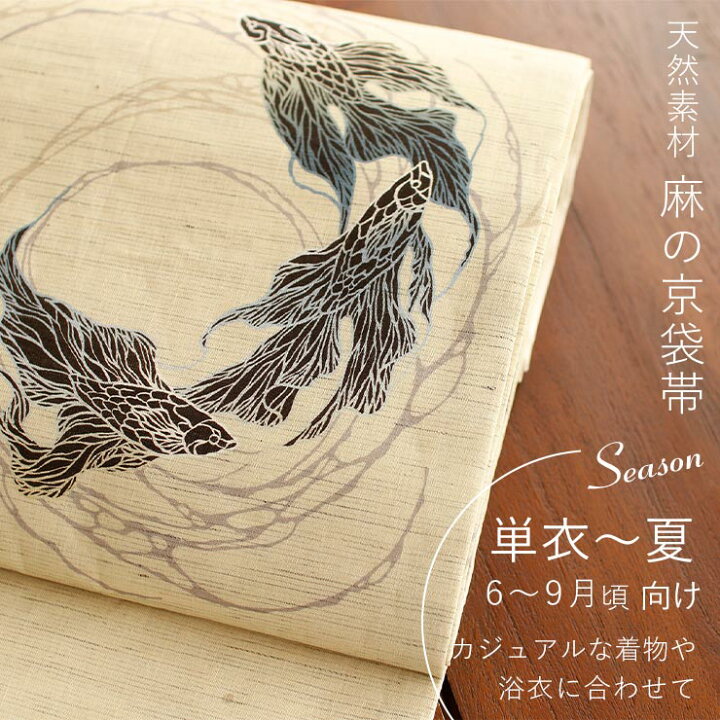 天然素材 麻の京袋帯
Season
単衣～夏
6～9月頃 向け
カジュアルな着物や
浴衣に合わせて